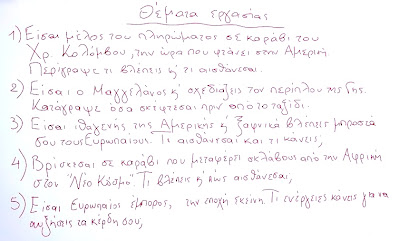 Θέματα εργασίας
1) Είσαι μέλος του πληρώματος σε καράβι του
Χρ. Κολόμβου, την ώρα που φτάνει στην Αμερική.
Περίγραψε τι βλέπεις κ' τι αισθάνεσαι.
2) Είσαι ο Μαγγελάνος κ' σχεδιάζεις τον περίπλου της Γης.
Κατάγραψε όσα σκέφτεσαι πριν από το ταξίδι.
3) Είσαι ιθαγενής της Αμερικής κ' ξαφνικά βλέπεις μπροστά
σου τους Ευρωπαίους. Τι αισθάνεσαι και τι κάνεις;
4) Βρίσκεσαι σε καράβι που μεταφέρει σκλάβους από την Αφρική
στον "Νέο Κόσμο". Τι βλέπεις κ' πώς αισθάνεσαι;
5) Είσαι Ευρωπαίος έμπορος, την εποχή εκείνη. Τι ενέργειες κάνεις για να
αυξήσεις τα κέρδη σου;